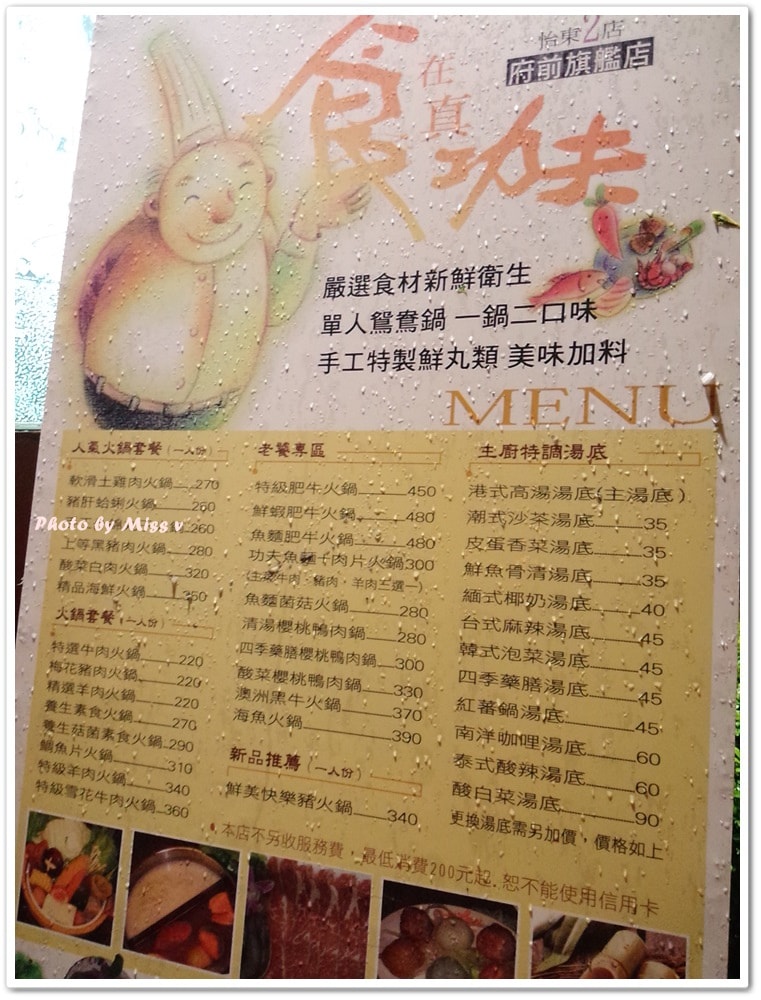 怡東2店
府前旗艦店
食在真功夫
嚴選食材新鮮衛生
單人鴛鴦鍋 一鍋二口味
手工特製鮮丸類 美味加料
MENU
人氣火鍋套餐(一人份)
軟滑土雞肉火鍋 270
豬肝蛤蜊火鍋 260
火鍋 260
上等黑豬肉火鍋 280
酸菜白肉火鍋 320
精品海鮮火鍋 350
火鍋套餐(一人份)
特選牛肉火鍋 220
梅花豬肉火鍋 220
精選羊肉火鍋 220
養生素食火鍋 270
養生菇菌素食火鍋 290
鯛魚片火鍋 310
特級羊肉火鍋 340
特級雪花牛肉火鍋 360
老饕專區
特級肥牛火鍋 450
鮮蝦肥牛火鍋 480
魚麵肥牛火鍋 480
功夫魚麵(肉片火鍋 300
(主菜牛肉,豬肉,羊肉三選一)
魚麵菌菇火鍋 280
清湯櫻桃鴨肉鍋 280
四季藥膳櫻桃鴨肉鍋 300
酸菜櫻桃鴨肉鍋 330
澳洲黑牛火鍋 370
海魚火鍋 390
新品推薦(一人份)
鮮美快樂豬火鍋 340
主廚特調湯底
港式高湯湯底(主湯底)
潮式沙茶湯底 35
皮蛋香菜湯底 35
鮮魚骨清湯底 35
緬式椰奶湯底 40
台式麻辣湯底 45
韓式泡菜湯底 45
四季藥膳湯底 45
紅蕃鍋湯底 45
南洋咖哩湯底 60
泰式酸辣湯底 60
酸白菜湯底 90
更換湯底需另加價,價格如上
本店不另收服務費,最低消費200元起.恕不能使用信用卡
Photo by Miss v